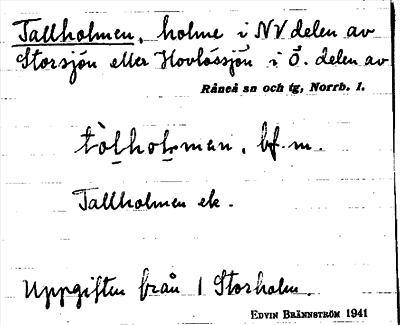 Tallholmen, holme i NV delen av
Storsjön eller Hovlössjön i Ö. delen av
Råneå sn och tg, Norrb. l.
tòlholmen, bf. m.
Tallholmen ek.
Uppgiften från 1 Storholm.
EDVIN BRÄNNSTRÖM 1941